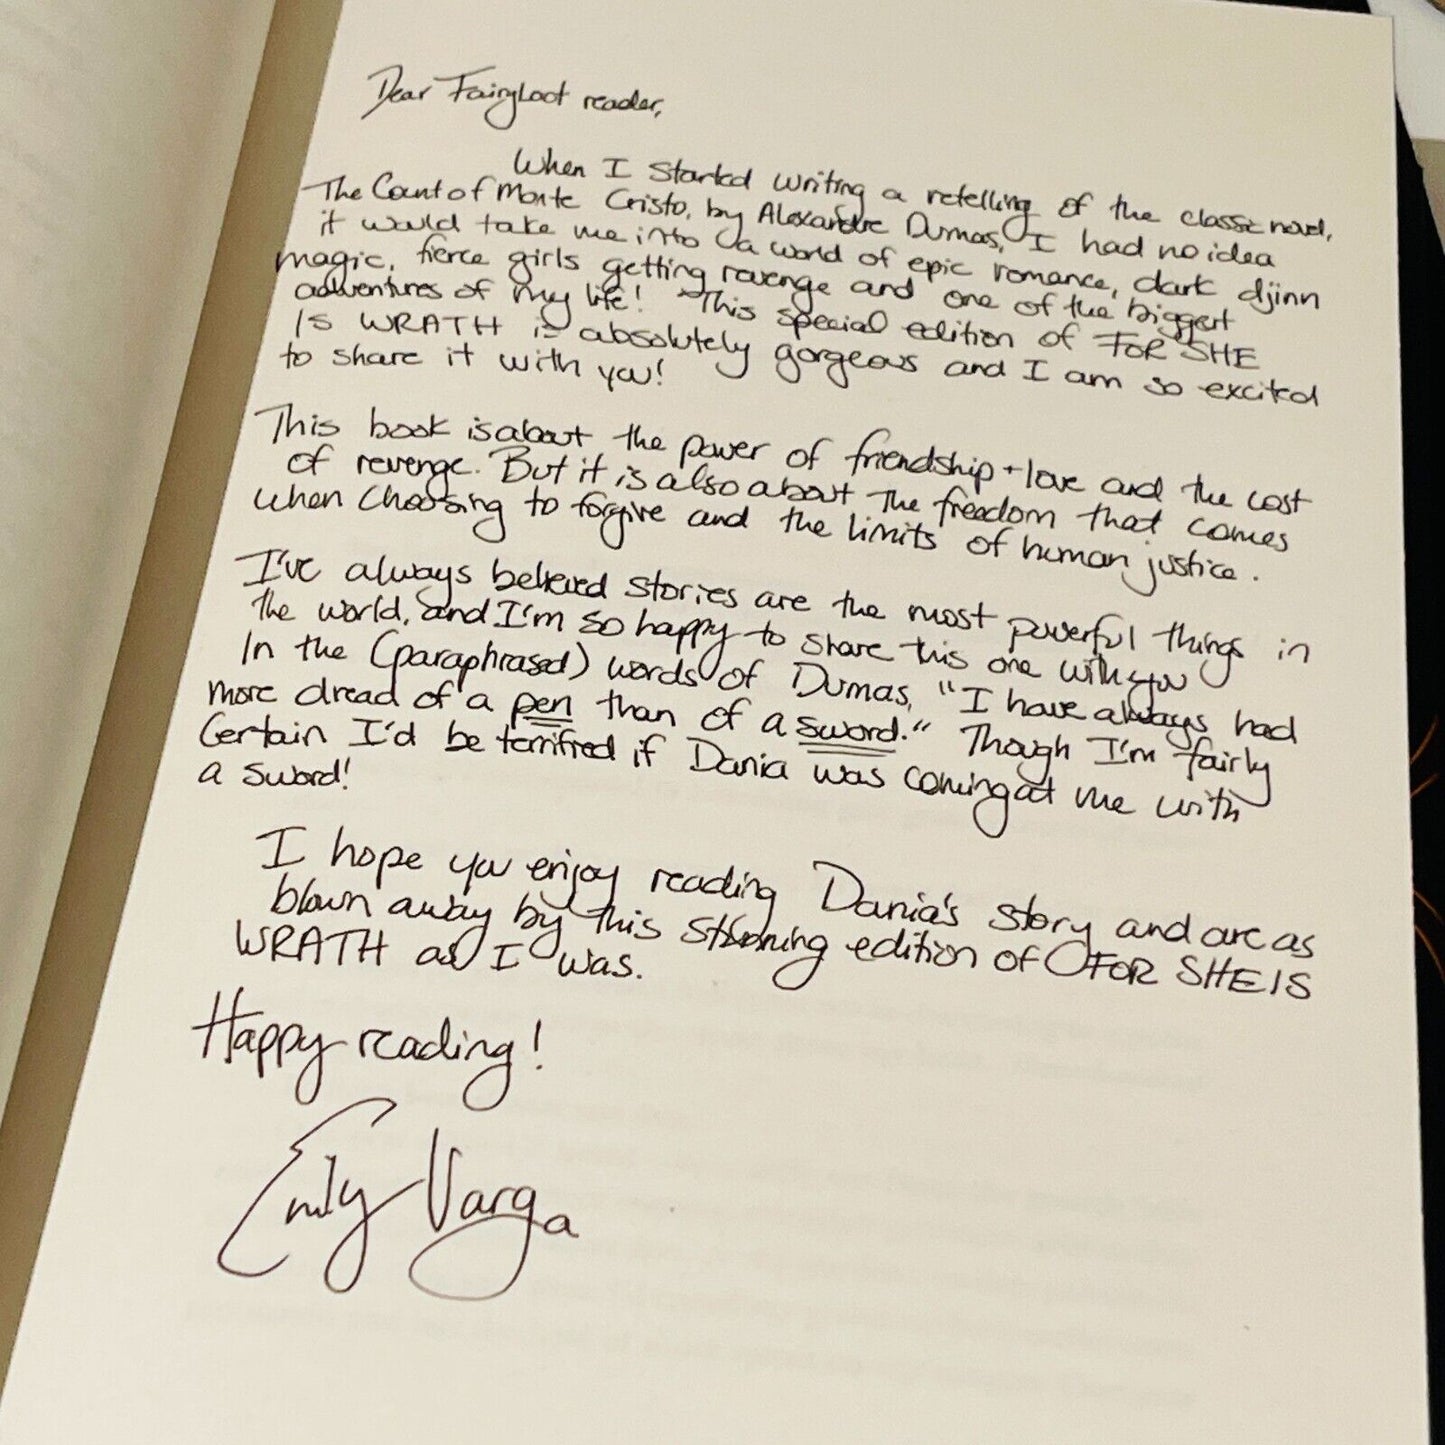 Dear FairyLoot reader,
When I started writing a retelling of the classic novel,
The Count of Monte Cristo, by Alexandre Dumas, I had no idea
it would take me into a world of epic romance, dark djinn
magic, fierce girls getting revenge and one of the biggest
adventures of my life! This special edition of FOR SHE
IS WRATH is absolutely gorgeous and I am so excited
to share it with you!
This book is about the power of friendship + love and the cost
of revenge. But it is also about the freedom that comes
when choosing to forgive and the limits of human justice.
I've always believed stories are the most powerful things in
the world, and I'm so happy to share this one with you
In the (paraphrased) words of Dumas, "I have always had
more dread of a pen than of a sword." Though I'm fairly
certain I'd be terrified if Dania was coming at me with
a sword!
I hope you enjoy reading Dania's story and are as
blown away by this stunning edition of FOR SHE IS
WRATH as I was.
Happy reading!
Emily Varga